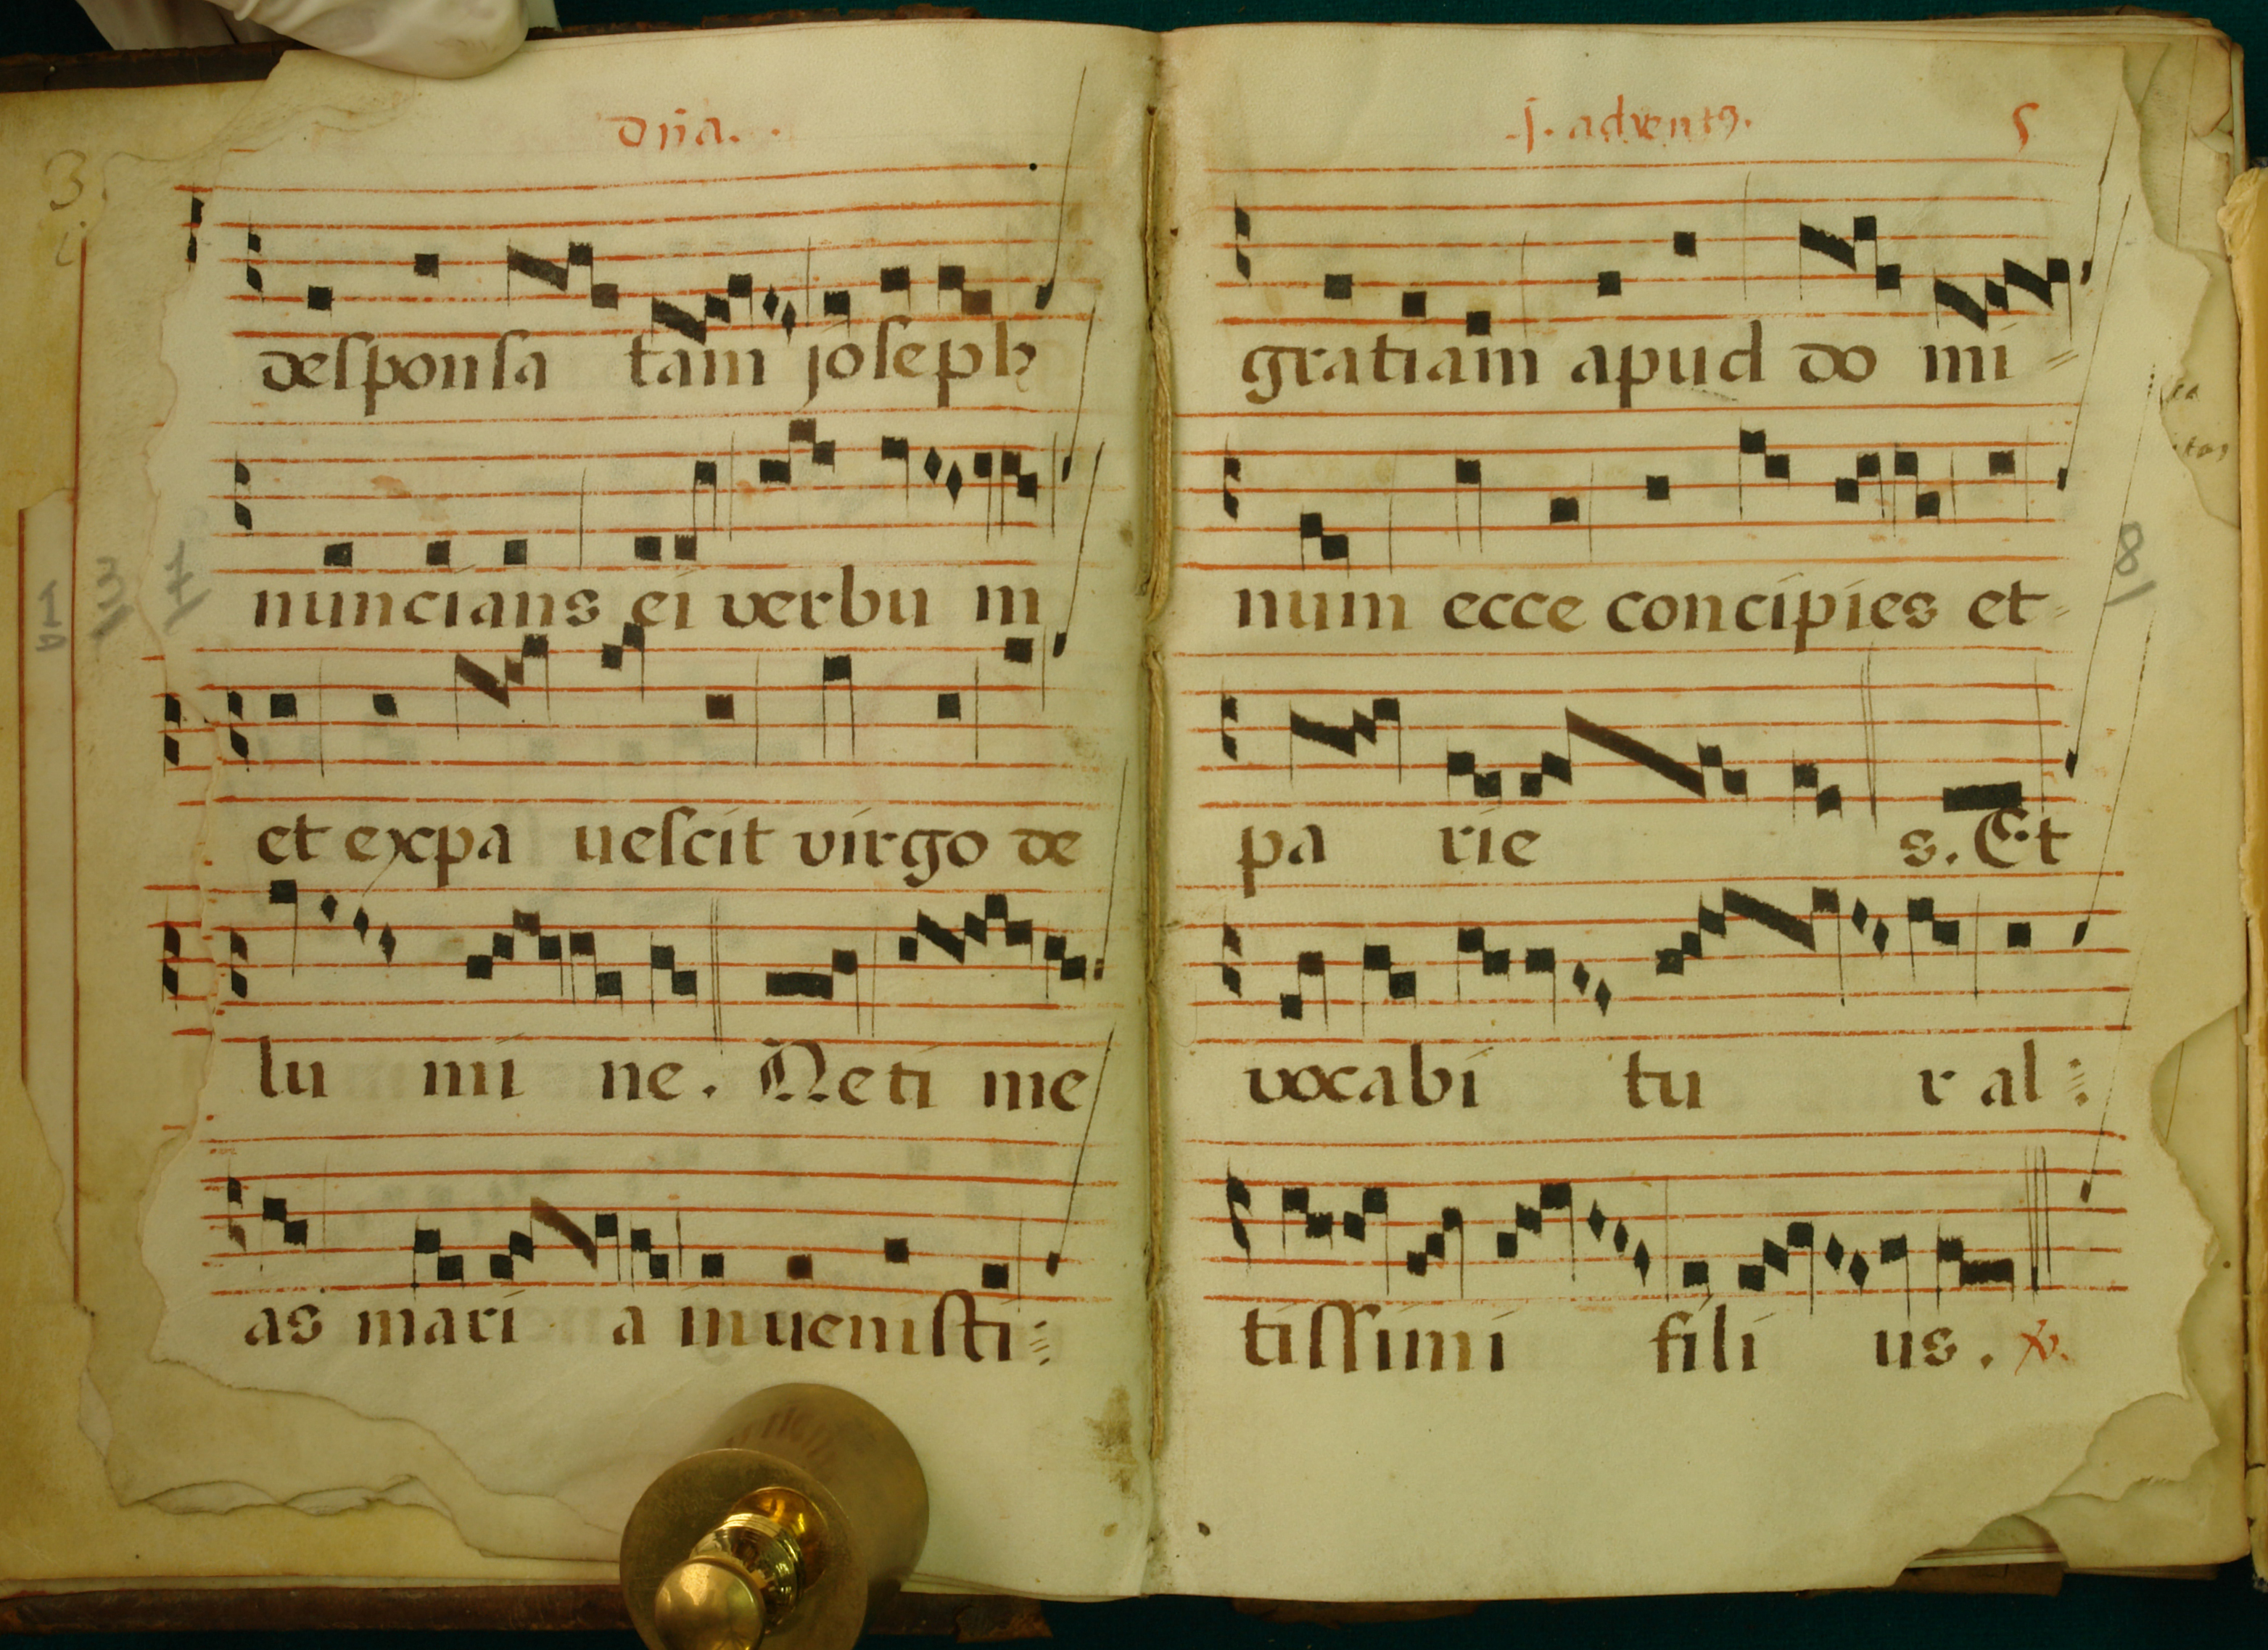 dña.
3.
deſponſa tam joſeph
nuncians ei verbu m
et expa ueſcit virgo de
lu mi ne. Ne ti me
as mari a inueniſti
.j. adventꝯ. 5
gratiam apud do mi
num ecce concipies et
8
pa rie s. Et
vocabi tu r al
tiſſimi fili us. ℣.